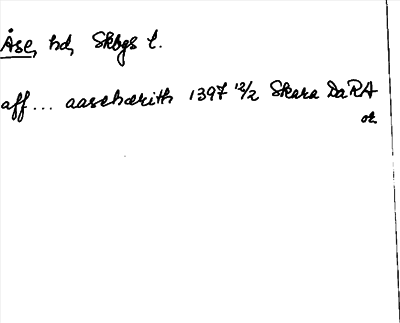 Åse, hd, Skbgs l.
aff... aaschærith 1397 12/2 Skara DaRA
or.